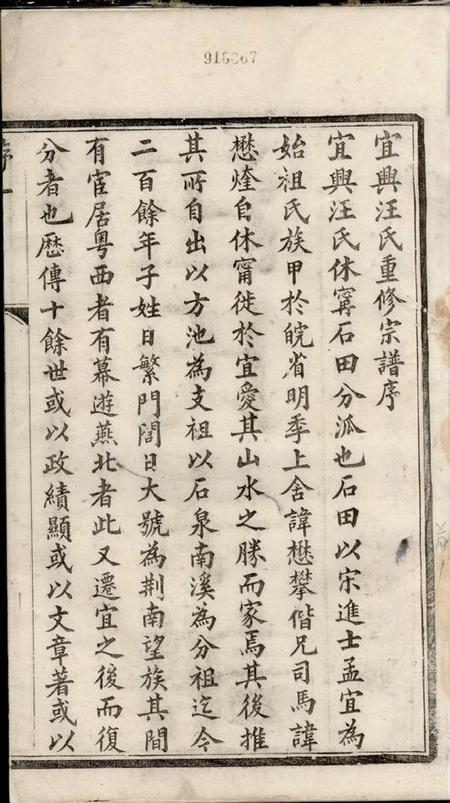 918667
宜興汪氏重修宗譜序
宜興汪氏休寗石田分派也石田以宋進士孟宜為
始祖氏族甲於皖省明季上舍諱懋攀偕兄司馬諱
懋煃自休甯徙於宜愛其山水之勝而家焉其後推
其所自出以方池為支祖以石泉南溪為分祖迄今
二百餘年子姓日繁門閭日大號為荆南望族其間
有宦居粤西者有幕遊燕北者此又遷宜之後而復
分者也歷傳十餘世或以政績顯或以文章著或以
序一